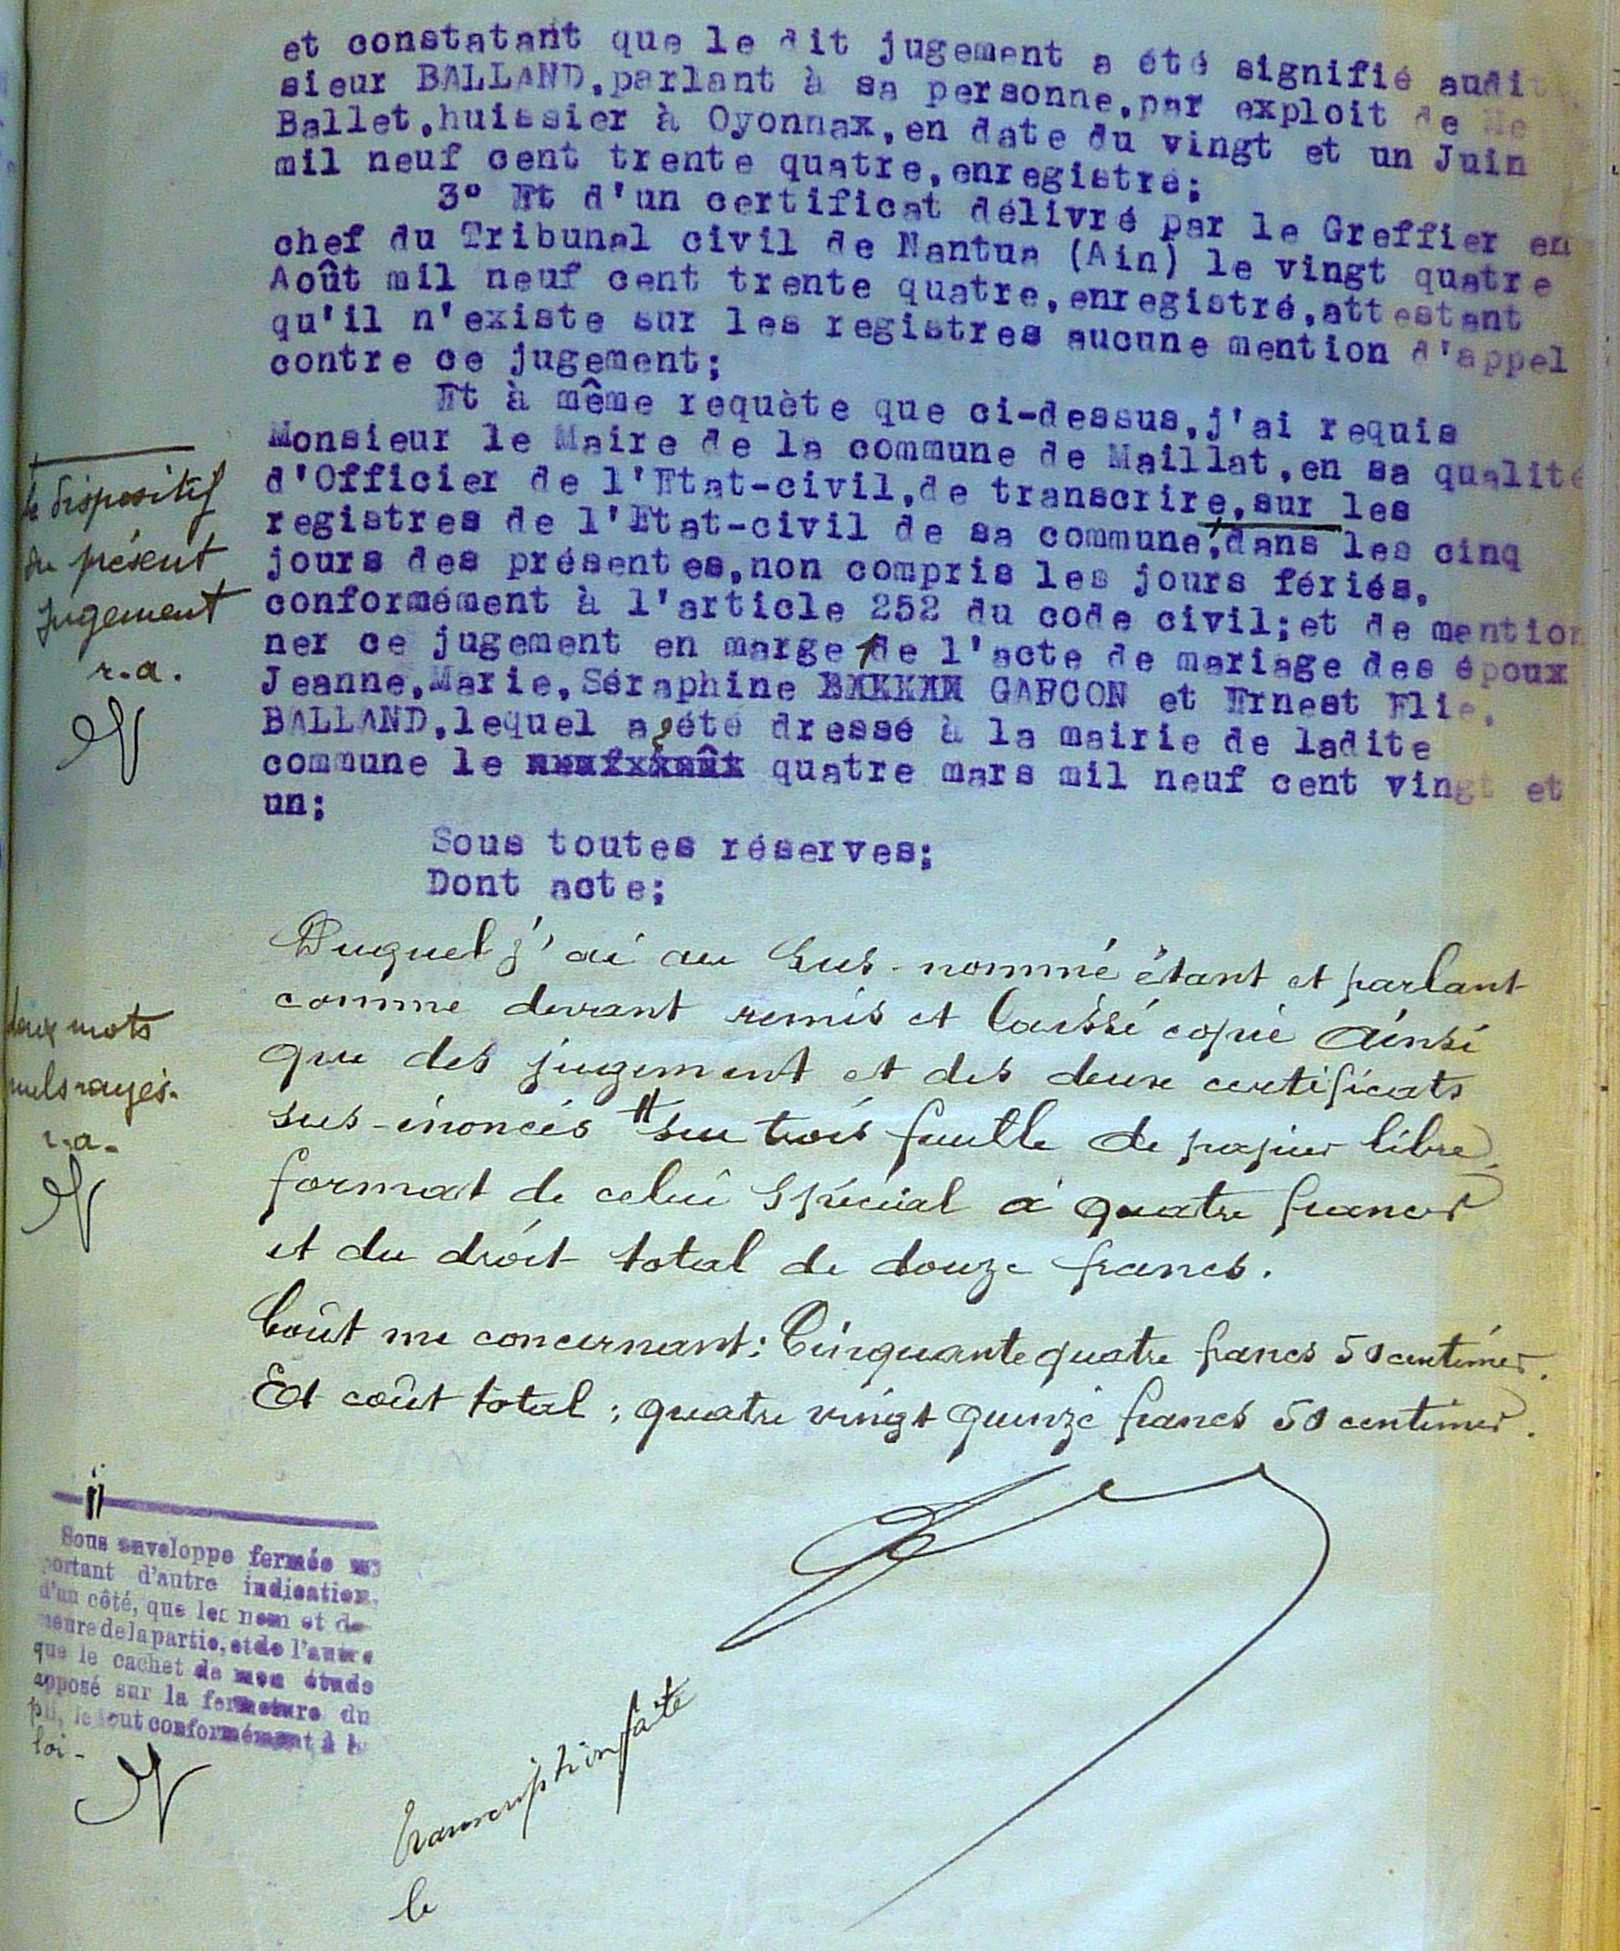 et constatant que le dit jugement a été signifié audit
sieur BALLAND,parlant à sa personne,par exploit de Me
Ballet,huissier à Oyonnax,en date du vingt et un Juin
mil neuf cent trente quatre,enregistré;
3° Et d'un certificat délivré par le Greffier en
chef du Tribunal civil de Nantua (Ain) le vingt quatre
Août mil neuf cent trente quatre,enregistré,attestant
qu'il n'existe sur les registres aucune mention d'appel
contre ce jugement;
Et à même requète que ci-dessus,j'ai requis
Monsieur le Maire de la commune de Maillat,en sa qualité
d'Officier de l'Etat-civil,de transcrire,sur les
registres de l'Etat-civil de sa commune,dans les cinq
jours des présentes,non compris les jours fériés,
conformément à l'article 252 du code civil;et de mention
ner ce jugement en marge de l'acte de mariage des époux
Jeanne,Marie,Séraphine GARCON et Ernest Elie,
BALLAND,lequel a été dressé à la mairie de ladite
commune le quatre mars mil neuf cent vingt et
un;
Sous toutes réserves;
Dont acte;
le dispositif
du présent
jugement
r.a.
Duquel j'ai au sus-nommé étant et parlant
comme devant remis et laissé copie ainsi
que des jugement et des deux certificats
sus-énoncés # sur trois feuille de papier libre,
format de celui spécial à quatre francs
et du droit total de douze francs.
Coût me concernant: Cinquante quatre francs 50 centimes.
Et coût total: quatre vingt quinze francs 50 centimes.
deux mots
nuls rayés.
r.a.
Sous enveloppe fermée
portant d'autre indication,
d'un côté, que les nom et de-
meure de la partie, et de l'autre
que le cachet de mon étude
apposé sur la fermeture du
pli, le tout conformément à la
loi-
Transcription faite
le